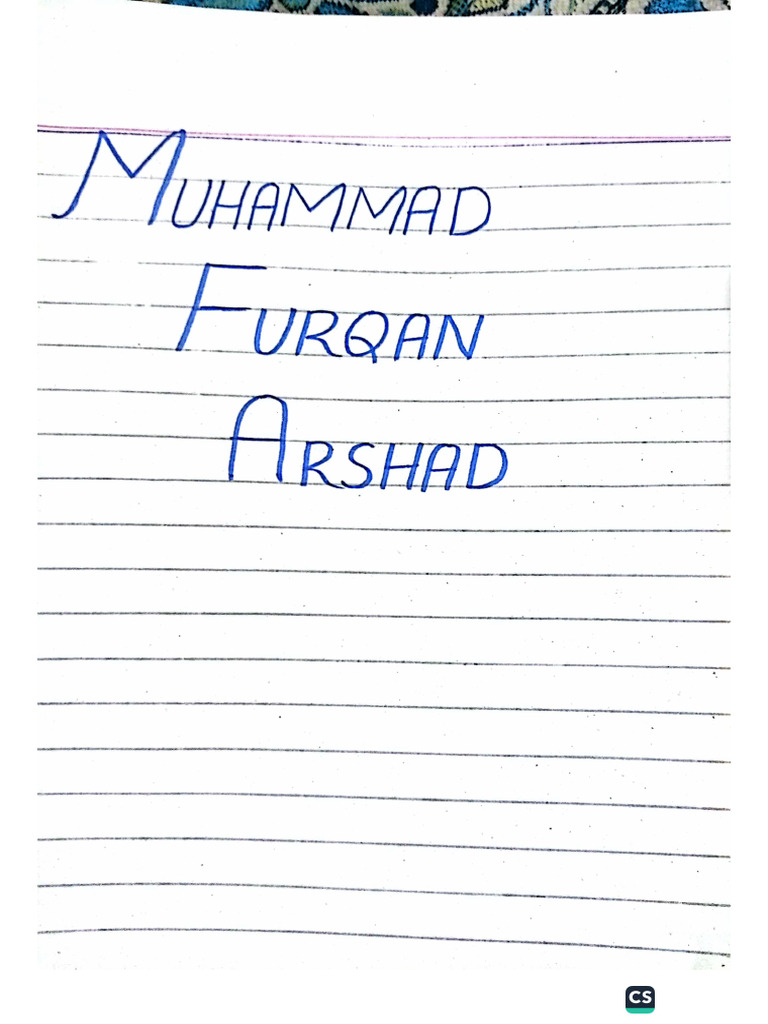 MUHAMMAD
FURQAN
ARSHAD
CS